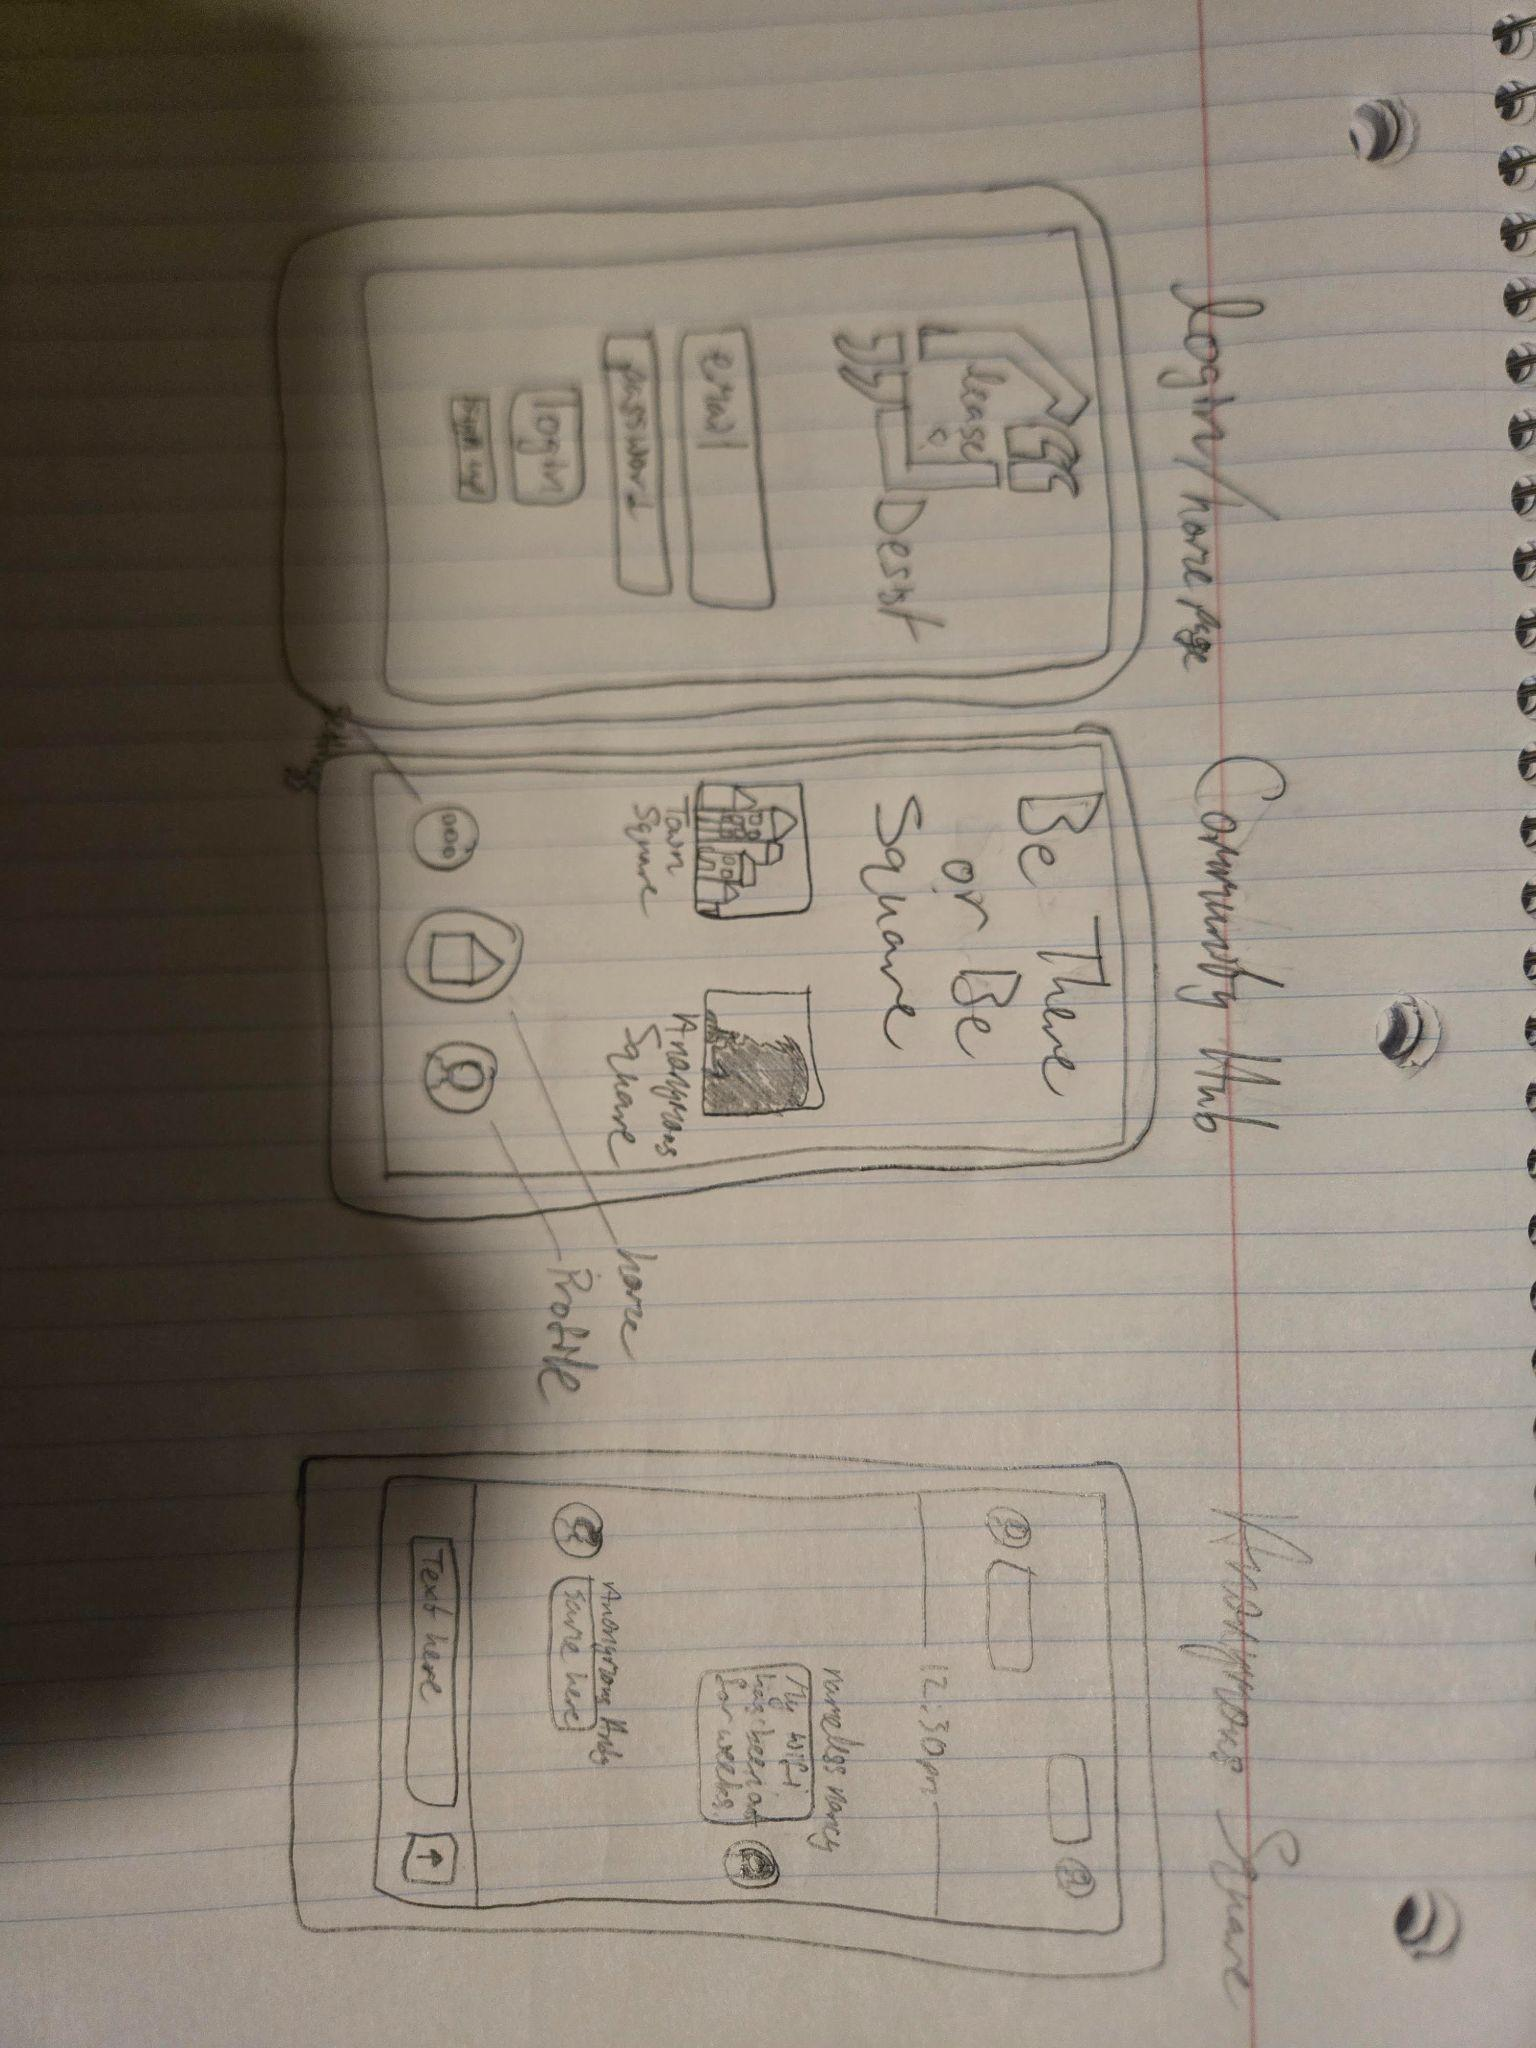 login/home page
lease
Desist
email
password
login
sign up
Community Hub
Be There
or Be
Square
Town
Square
Anonymous
Square
settings
home
Profile
Anonymous Square
12:30pm
nameless nancy
My wifi
has been out
for weeks.
Anonymous Andy
same here
Text here